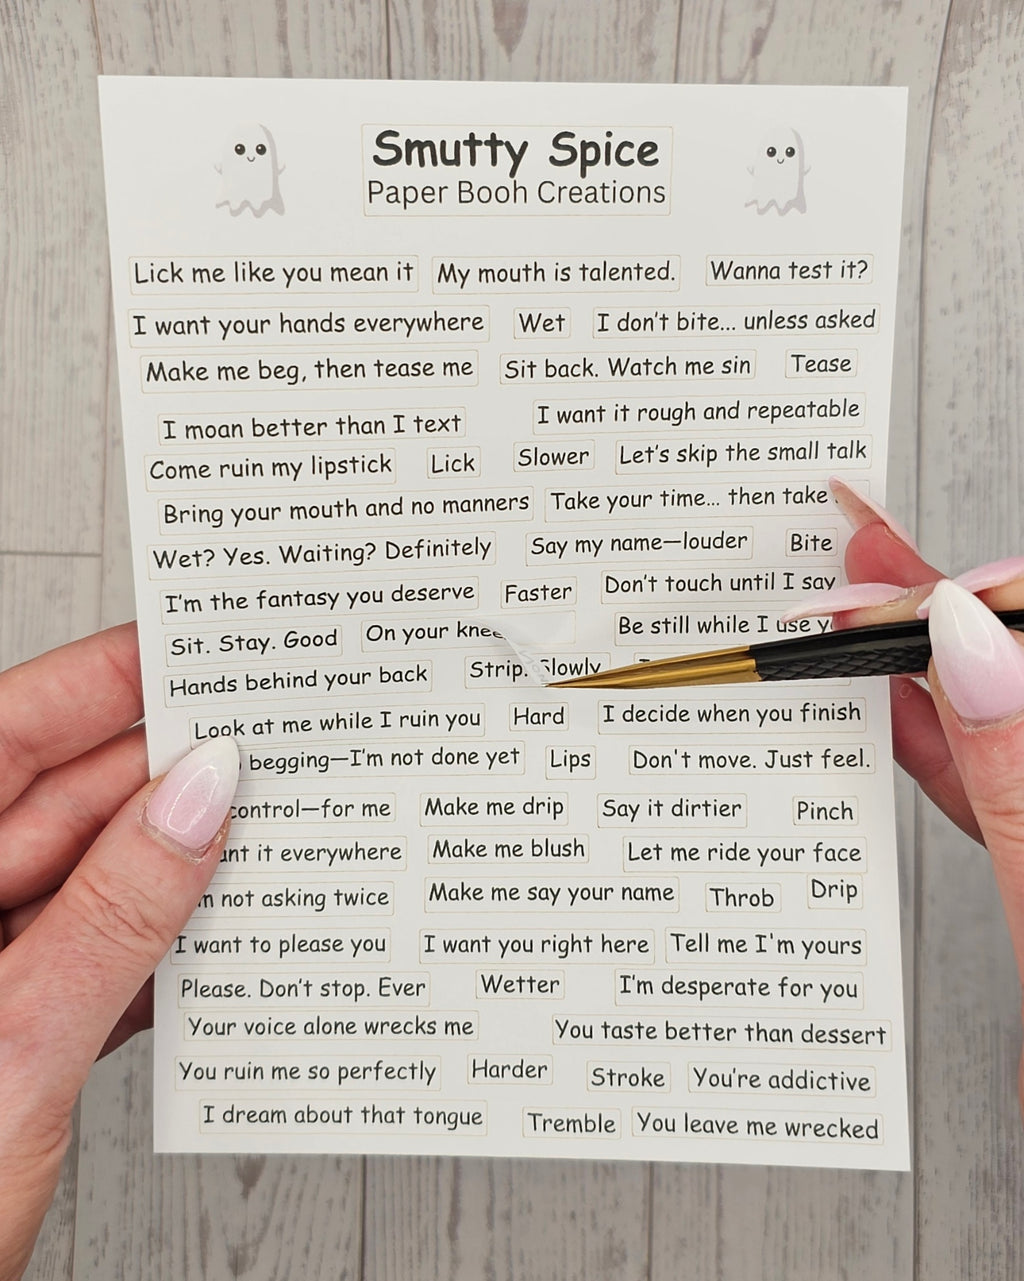 Smutty Spice
Paper Booh Creations
Lick me like you mean it My mouth is talented. Wanna test it?
I want your hands everywhere Wet I don't bite... unless asked
Make me beg, then tease me Sit back. Watch me sin Tease
I moan better than I text I want it rough and repeatable
Come ruin my lipstick Lick Slower Let's skip the small talk
Bring your mouth and no manners Take your time... then take
Wet? Yes. Waiting? Definitely Say my name—louder Bite
I'm the fantasy you deserve Faster Don't touch until I say
Sit. Stay. Good On your Be still while I use
Hands behind your back Strip. Slowly
Look at me while I ruin you Hard I decide when you finish
begging—I'm not done yet Lips Don't move. Just feel.
control—for me Make me drip Say it dirtier Pinch
it everywhere Make me blush Let me ride your face
not asking twice Make me say your name Throb Drip
I want to please you I want you right here Tell me I'm yours
Please. Don't stop. Ever Wetter I'm desperate for you
Your voice alone wrecks me You taste better than dessert
You ruin me so perfectly Harder Stroke You're addictive
I dream about that tongue Tremble You leave me wrecked